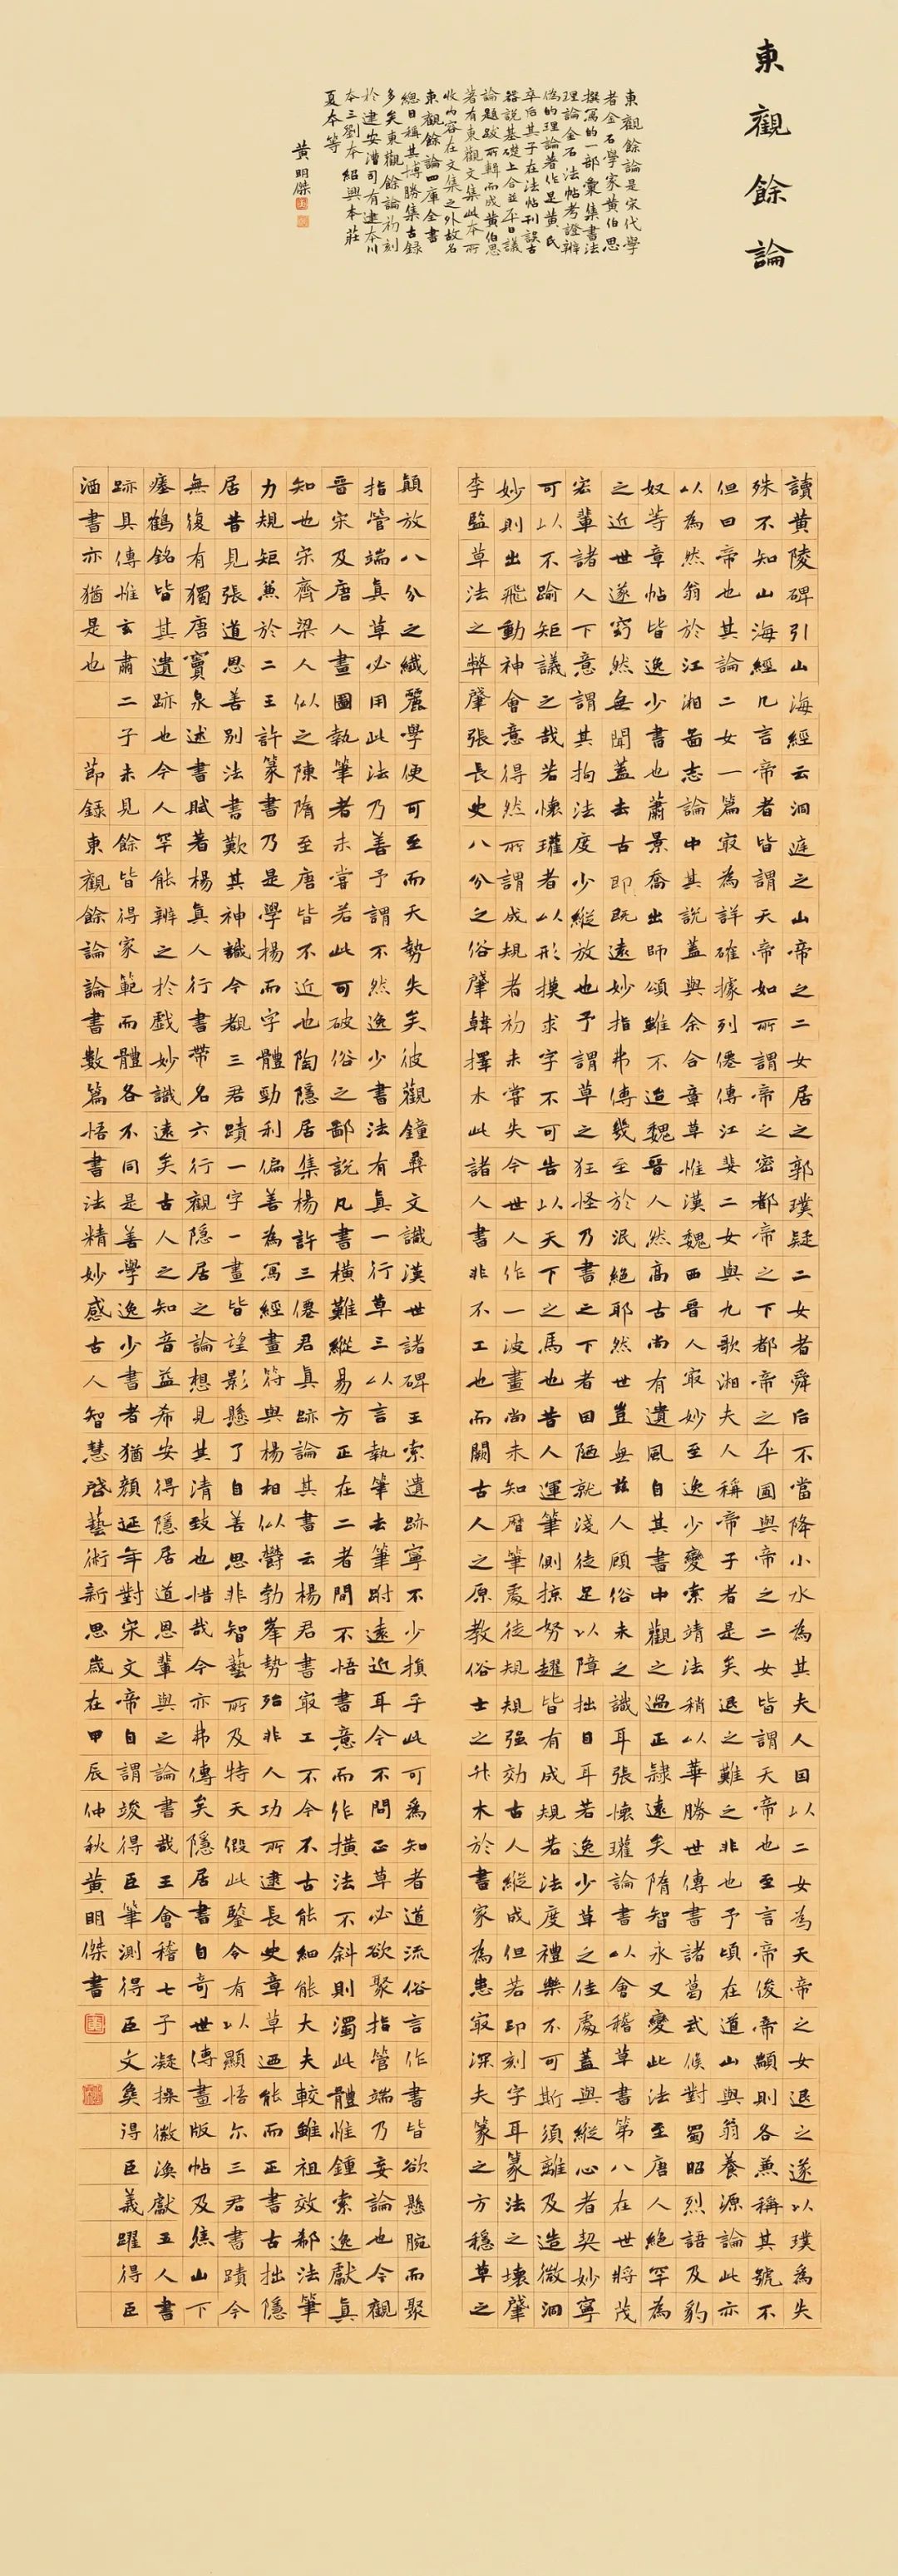 東觀餘論
東觀餘論是宋代學
者金石學家黃伯思
撰寫的一部彙集書法
理論金石法帖考證辨
偽的理論著作是黃氏
卒后其子在法帖刊誤古
器說基礎上合並平日議
論題跋所輯而成黃伯思
著有東觀文集此本所
收內容在文集之外故名
東觀餘論四庫全書
總目稱其博勝集古錄
多矣東觀餘論初刻
於建安漕司有建本川
本三劉本紹興本莊
夏本等
黃明傑
讀黃陵碑引山海經云洞庭之山帝之二女居之郭璞疑二女者舜后不當降小水為其夫人因以二女為天帝之女退之遂以璞為失
殊不知山海經凡言帝者皆謂天帝如所謂帝之密都帝之下都帝之平圃與帝之二女皆謂天帝也至言帝俊帝顓則各兼稱其號不
但曰帝也其論二女一篇最為詳確據列僊傳江婓二女與九歌湘夫人稱帝子者是矣退之難之非也予頃在道山與翁養源論此亦
以為然翁於江湘啚志論中其說蓋與余合章草惟漢魏西晉人最妙至逸少變索靖法稍以華勝世傳書諸葛武侯對蜀昭烈語及豹
奴等章帖皆逸少書也蕭景喬出師頌雖不迨魏晉人然高古尚有遺風自其書中觀之過正隷遠矣隋智永又變此法至唐人絕罕為
之近世遂窈然無聞蓋去古即既遠妙指弗傳幾至於泯絕耶然世豈無茲人顧俗未之識耳張懷瓘論書以會稽草書第八在世將茂
宏輩諸人下意謂其拘法度少縱放也予謂草之狂怪乃書之下者因陋就淺徒足以障拙目耳若逸少草之佳處蓋與縱心者契妙寧
可以不踰矩議之哉若懷瓘者以形摸求字不可告以天下之馬也昔人運筆側掠努趯皆有成規若法度禮樂不可斯須離及造微洞
妙則出飛動神會意得然所謂成規者初未嘗失今世人作一波畫尚未知厝筆處徒規規强効古人縱成但若印刻字耳篆法之壞肇
李監草法之弊肇張長史八分之俗肇韓擇木此諸人書非不工也而闕古人之原教俗士之升木於書家為患最深夫篆之方穩草之
顛放八分之纖麗學便可至而天勢失矣彼觀鐘彝文識漢世諸碑王索遺跡寧不少損乎此可爲知者道流俗言作書皆欲懸腕而聚
指管端真草必用此法乃善予謂不然逸少書法有真一行草三以言執筆去筆跗遠近耳今不問正草必欲聚指管端乃妄論也今觀
晉宋及唐人畫圖執筆者未嘗若此可破俗之鄙說凡書橫難縱易方正在二者間不悟書意而作橫法不斜則濁此體惟鍾索逸獻真
知也宋齊梁人似之陳隋至唐皆不近也陶隱居集楊許三僊君真跡論其書云楊君書最工不今不古能細能大夫較雖祖效郗法筆
力規矩兼於二王許篆書乃是學楊而字體勁利偏善為寫經畫符與楊相似欝勃峯勢殆非人功所逮長史章草迺能而正書古拙隱
居昔見張道思善別法書歎其神識今覩三君蹟一字一畫皆望影懸了自善思非智藝所及特天假此鑒今有以顯悟尔三君書蹟今
無復有獨唐竇泉述書賦著楊真人行書帶名六行觀隱居之論想見其清致也惜哉今亦弗傳矣隱居書自奇世傳畫版帖及焦山下
瘞鶴銘皆其遺跡也今人罕能辨之於戲妙識遠矣古人之知音益希安得隱居道恩輩與之論書哉王會稽七子凝操徽渙獻五人書
跡具傳惟玄肅二子未見餘皆得家範而體各不同是善學逸少書者猶顏延年對宋文帝自謂竣得臣筆測得臣文㚟得臣義躍得臣
酒書亦猶是也 節錄東觀餘論論書數篇悟書法精妙感古人智慧啓藝術新思歲在甲辰仲秋黃明傑書